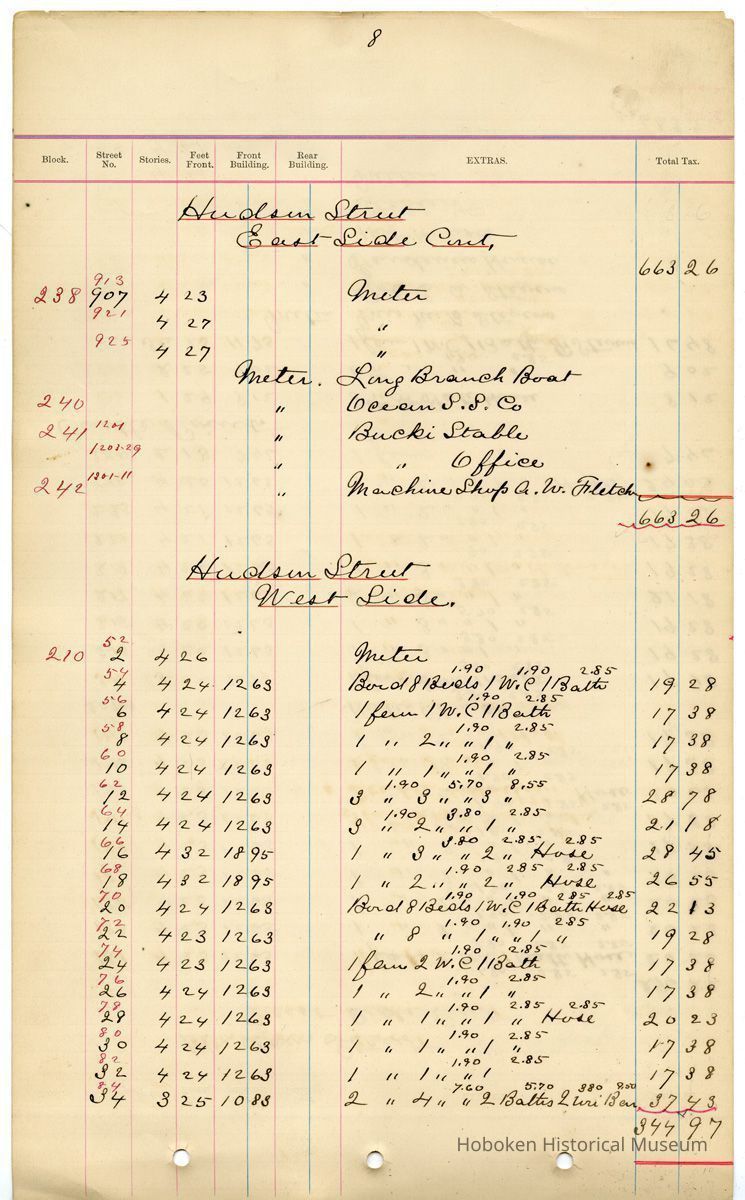 8
Block. Street No. Stories. Feet Front. Front Building. Rear Building. EXTRAS. Total Tax.
Hudson Street
East Side Cont,
663 26
913
238 907 4 23 Meter
921
4 27 "
925
4 27 "
Meter. Long Branch Boat
240 " Ocean S.S. Co
241 1201 " Bucki Stable
1203-29
" " Office
242 1301-11 " Machine Shop A. W. Fletch
663 26
Hudson Street
West Side.
52
210 2 4 26 Meter
54 1.90 1.90 2.85
4 4 24 12 63 Bord 8 Beds 1 W.C 1 Bath 19 28
56 1.90 2.85
6 4 24 12 63 1 fam 1 W.C 1 Bath 17 38
58 1.90 2.85
8 4 24 12 63 1 " 2 " " 1 " 17 38
60 1.90 2.85
10 4 24 12 63 1 " 1 " " 1 " 17 38
62 1.90 5.70 8.55
12 4 24 12 63 3 " 3 " " 3 " 28 78
64 1.90 3.80 2.85
14 4 24 12 63 3 " 2 " " 1 " 21 18
66 3.80 2.85 2.85
16 4 32 18 95 1 " 3 " " 2 " Hose 28 45
68 1.90 2 85 2.85
18 4 32 18 95 1 " 2 " " 2 " Hose 26 55
70 1.90 1.90 2 85 2.85
20 4 24 12 63 Bord 8 Beds 1 W.C 1 Bath Hose 22 13
72 1.90 1.90 2.85
22 4 23 12 63 " 8 " 1 " " 1 " 19 28
74 1.90 2.85
24 4 23 12 63 1 fam 2 W.C 1 Bath 17 38
76 1.90 2.85
26 4 24 12 63 1 " 2 " " 1 " 17 38
78 1.90 2.85 2.85
28 4 24 12 63 1 " 1 " " 1 " Hose 20 23
80 1.90 2.85
30 4 24 12 63 1 " 1 " " 1 " 17 38
82 1.90 2.85
32 4 24 12 63 1 " 1 " " 1 " 17 38
84 7.60 5.70 3 80 9.50
34 3 25 10 83 2 " 4 " " 2 Baths 2 Uri Bar 37 43
344 97
Hoboken Historical Museum